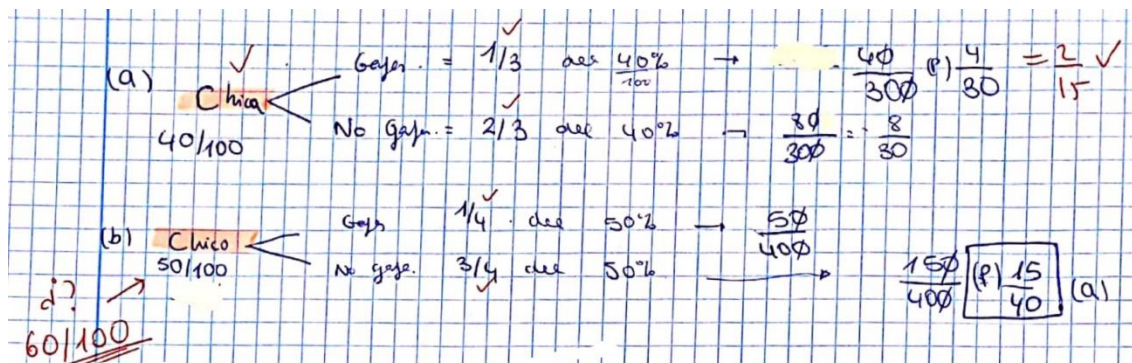 (a) Chica Gafas. = 1/3 del 40%/100 → 40/300 (P) 4/30 = 2/15 ✓
40/100 No Gafas. = 2/3 del 40% → 80/300 = 8/30
(b) Chico Gafas 1/4 . del 50% → 50/400
50/100 No gafas. 3/4 del 50% → 150/400 (P) 15/40 (a)
¿?
60/100